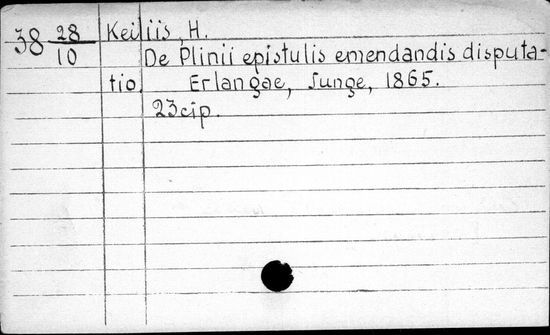 38 28/10 Keiliis, H.
De Plinii epistulis emendandis disputa-
tio. Erlangae, Junge, 1865.
23cip.